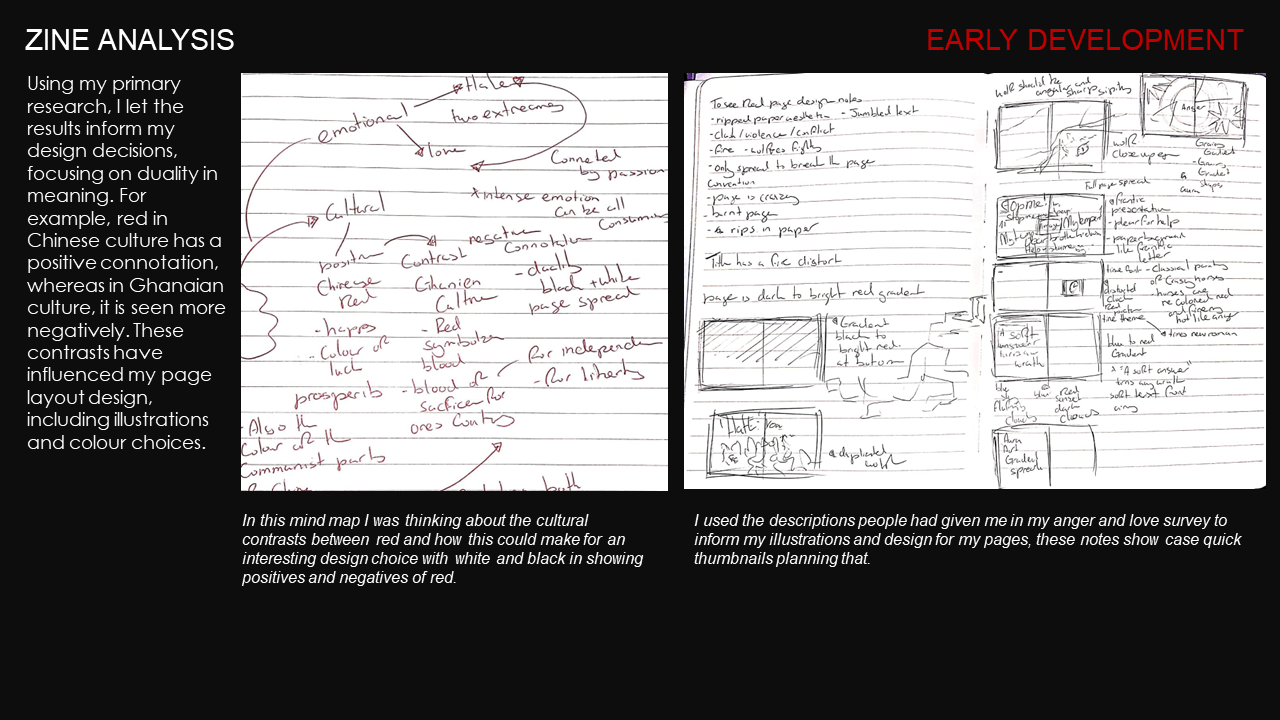 ZINE ANALYSIS
EARLY DEVELOPMENT
Using my primary
research, I let the
results inform my
design decisions,
focusing on duality in
meaning. For
example, red in
Chinese culture has a
positive connotation,
whereas in Ghanaian
culture, it is seen more
negatively. These
contrasts have
influenced my page
layout design,
including illustrations
and colour choices.
Hate
two extremes
emotional
love
Connected
by passion
* intense emotion
Can be all
Consuming
Cultural
positive
Chinese
Red
- happy
- Colour of
luck
prosperity
- Also the
Colour of the
Communist party
Contrast
Ghanien
Culture
- Red
symbolises
blood
- blood of
sacfice for
ones Country
negative
Connotation
- duality
black + white
page spread
for independence
- for liberty
both
To see Red page design notes
- ripped paper aesthetic - Jumbled text
- clash/violence/conflict
- fire - wolves fighting
- only spread to break the page
Convention
- page is crazy
- burnt page
- & rips in paper
Title has a fire distort
page is dark to bright red gradient
Gradient
black to
bright red
at bottom
Hate
duplicated
wolf
wolf should be
angular and
sharp
Anger
wolf
close up
Grainy
Gradient
- Grainy
Gradient
&
shapes
full page spread
frantic
presentation
- plea for help
letter
time font - classical painting
of crazy horses
- horses are
recolored red
and
distorted
Red
time theme
times new roman
blue to red
Gradient
* "A soft answer
turns away wrath
soft
blue
sky
clouds
Red
sunset
dark
clouds
A soft
answer
turns away
wrath
Aura
Art
Gradient
spread
In this mind map I was thinking about the cultural
contrasts between red and how this could make for an
interesting design choice with white and black in showing
positives and negatives of red.
I used the descriptions people had given me in my anger and love survey to
inform my illustrations and design for my pages, these notes show case quick
thumbnails planning that.